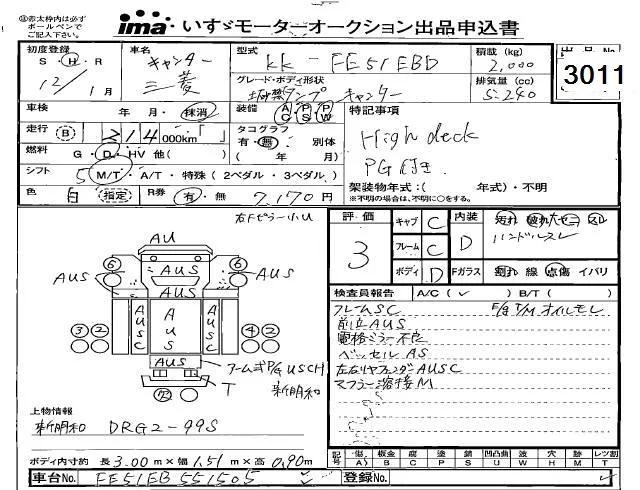 ※赤太枠内は必ず ボールペンで ご記入下さい。
ima いすゞモーターオークション出品申込書
初度登録 S・H・R 12/1月
車名 キャンター 三菱
型式 KK-FE51EBD
積載(kg) 2,000
出品No.
3011
グレード・ボディ形状 ダンプ キャンター
排気量(cc) 5,240
車検 年 月・抹消
装備 AC PS PW
特記事項
走行 B 214,000km
タコグラフ 有・無 別体 ( 年 月)
High deck
燃料 G・D・HV 他( )
PG付き
シフト 5 M/T・A/T・特殊(2ペダル・3ペダル)
架装物年式:( 年式)・不明
※不明の場合は、不明に○をする。
色 白 指定 R券 有・無 7,170円
評価 3
キャブ C
フレーム C
ボディ D
内装 D
Fガラス 割れ 線 点傷 イバリ
AU
AUS
AUS
AUS
6
6
3 2
4 2
AUSC
AUS
AUSC
AUS
T
新明和
検査員報告 A/C(✓) B/T( )
フレームSC
F/g T/M オイルモレ
前立AUS
電格ミラー不良
ベッセルAS
左右リヤフェンダーAUSC
マフラー溶接M
上物情報
新明和 DRG2-99S
ボディ内寸約 長3.00m×幅1.51m×高0.90m
記号 傷A 板金B 腐C 塗P 錆S 凹凸曲U 波W 穴H メガM レンズ割T
車台No. FE51EB551505
登録No.